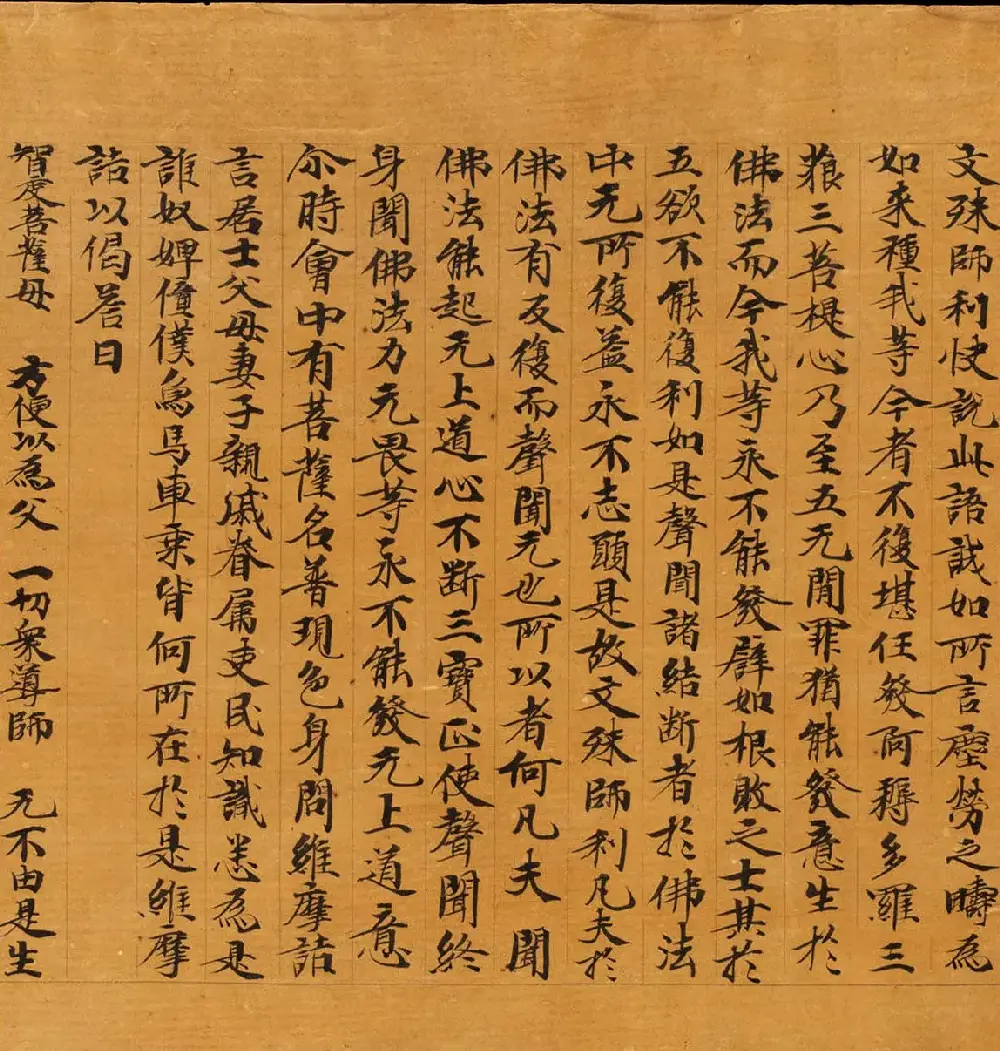 文殊師利快說此語誠如所言塵勞之疇為
如来種我等今者不復堪任發阿耨多羅三
藐三菩提心乃至五无間罪猶能發意生於
佛法而今我等永不能發譬如根敗之士其於
五欲不能復利如是聲聞諸結断者於佛法
中无所復益永不志願是故文殊師利凡夫於
佛法有反復而聲聞无也所以者何凡夫聞
佛法能起无上道心不断三寶正使聲聞終
身聞佛法力无畏等永不能發无上道意
尒時會中有菩薩名普現色身問維摩詰
言居士父母妻子親戚眷属吏民知識悉為是
誰奴婢僮僕鳥馬車乗皆何所在於是維摩
詰以偈荅曰
智度菩薩母　方便以為父　一切衆導師　无不由是生